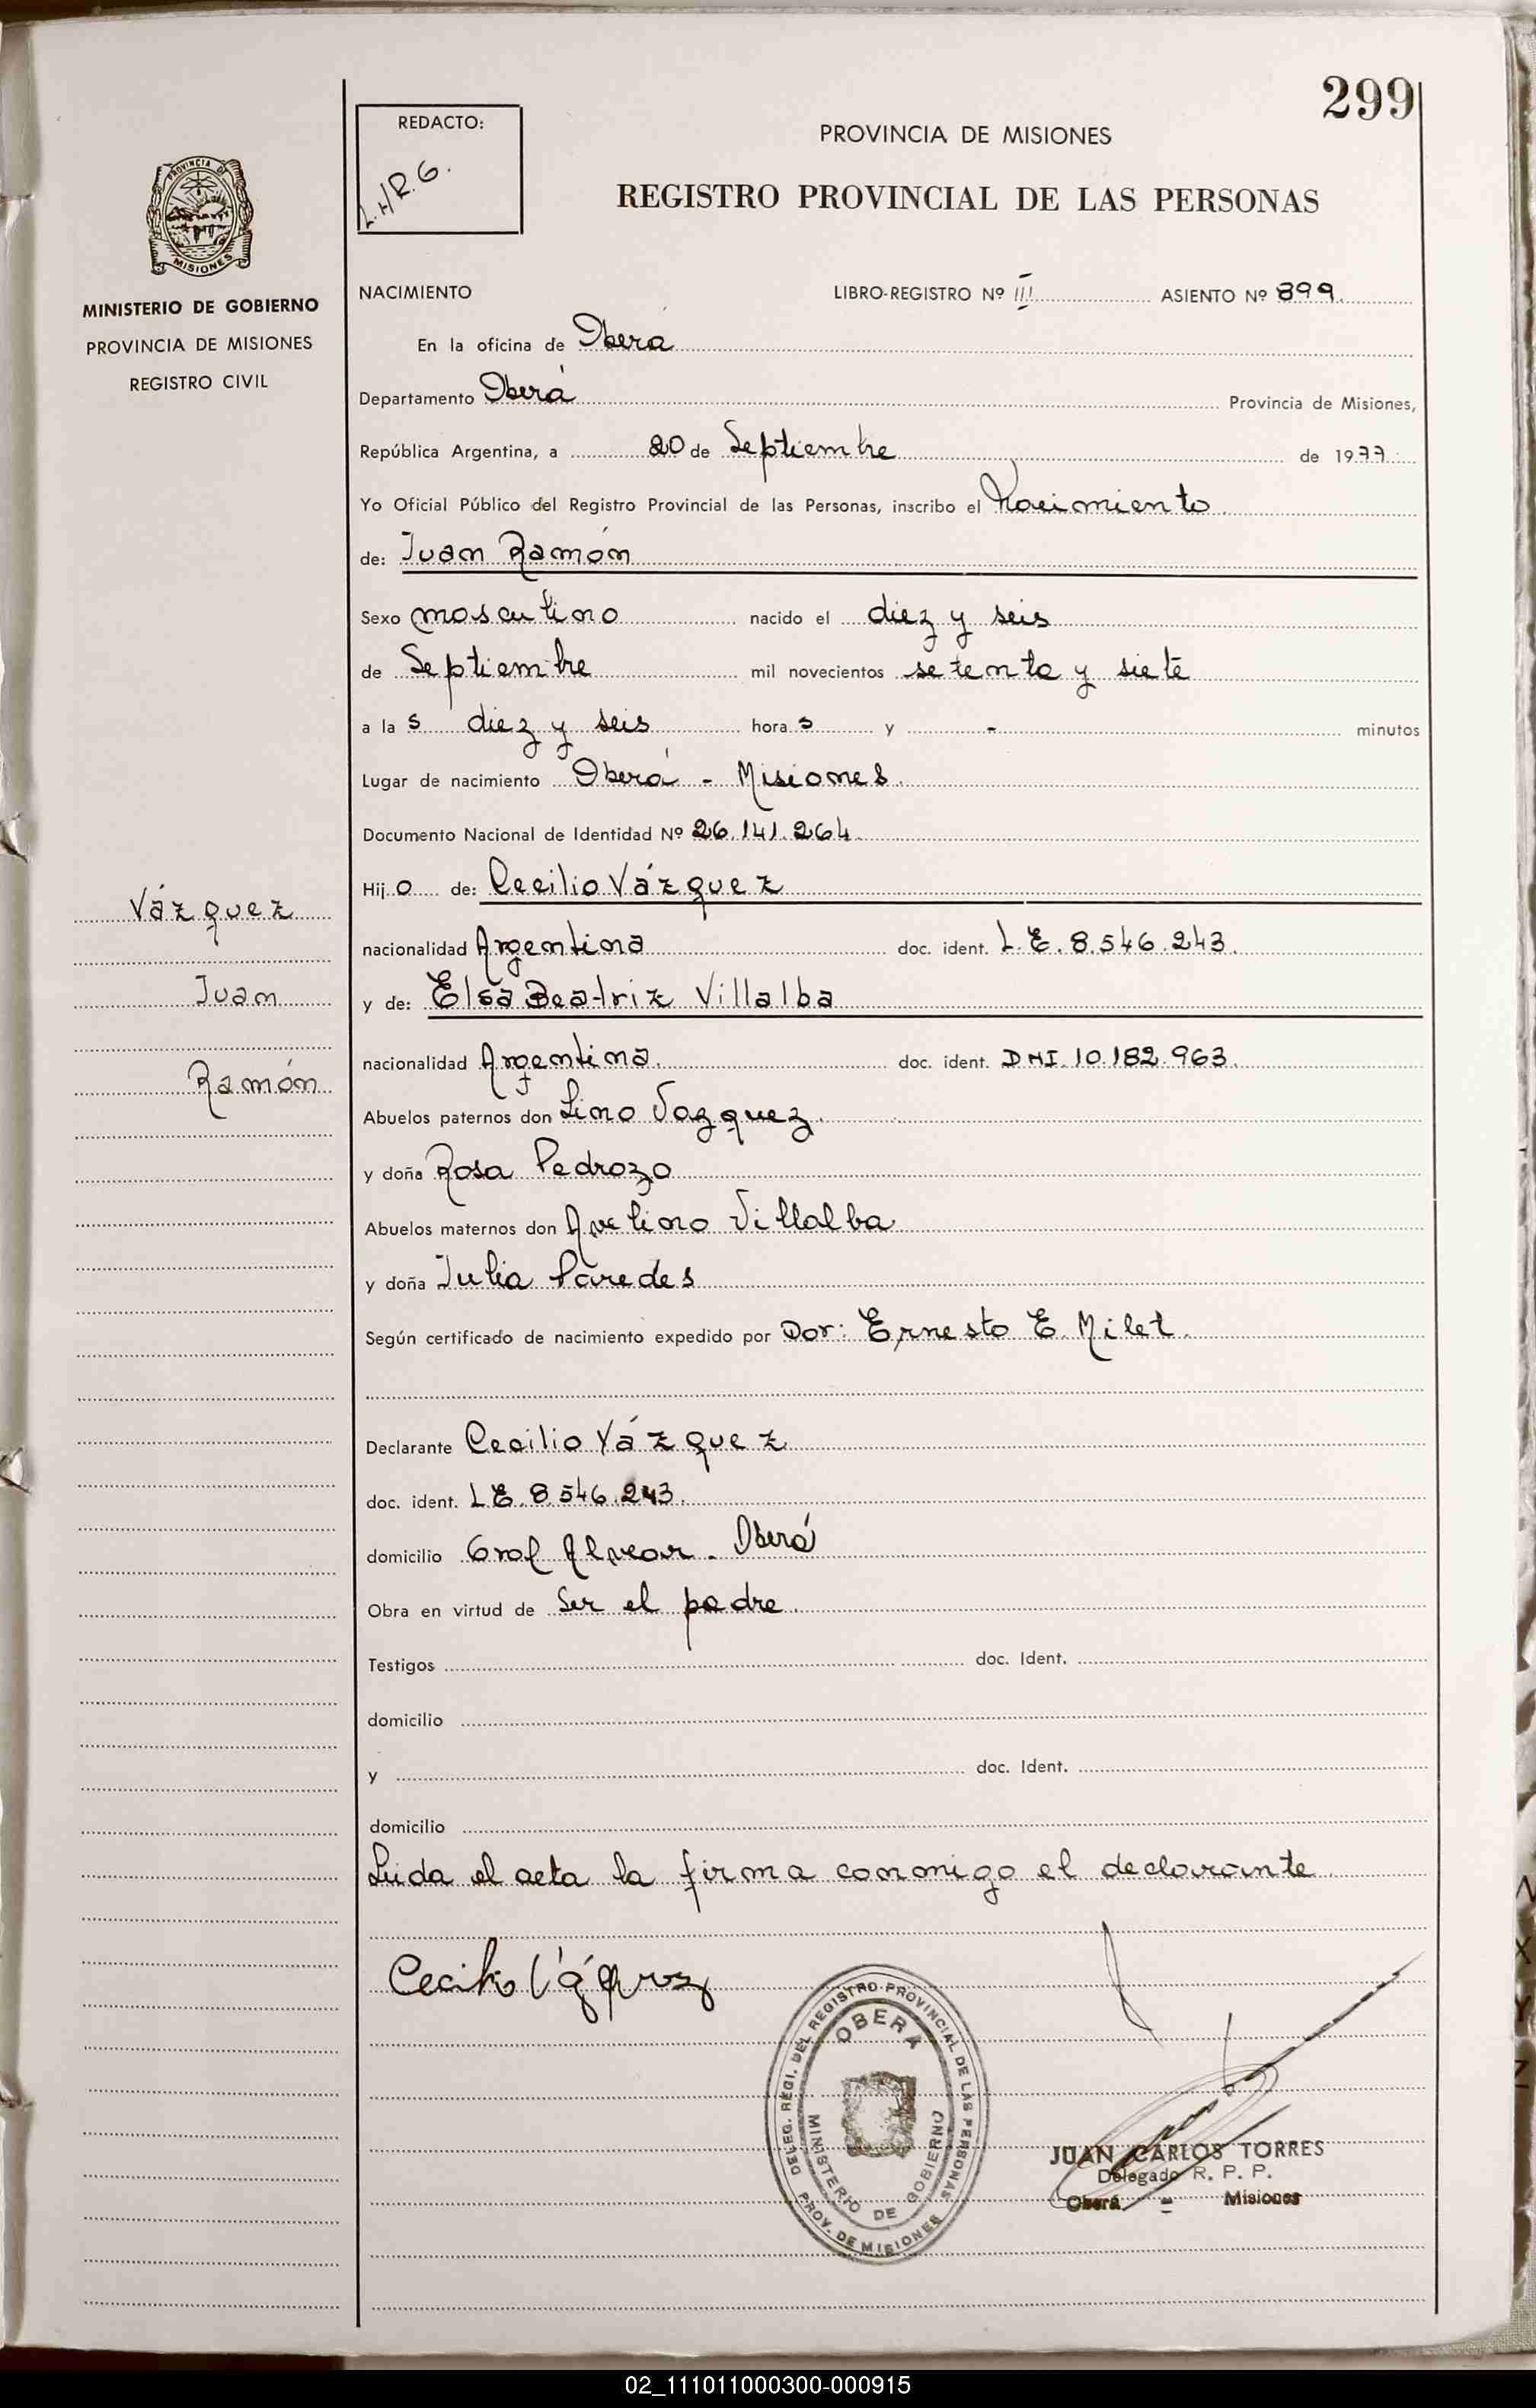 299
REDACTO:
L.H/R.G.
PROVINCIA DE MISIONES
REGISTRO PROVINCIAL DE LAS PERSONAS
PROVINCIA DE
MISIONES
MINISTERIO DE GOBIERNO
PROVINCIA DE MISIONES
REGISTRO CIVIL
NACIMIENTO LIBRO-REGISTRO Nº III ASIENTO Nº 899
En la oficina de Oberá
Departamento Oberá Provincia de Misiones,
República Argentina, a 20 de Septiembre de 1977
Yo Oficial Público del Registro Provincial de las Personas, inscribo el Nacimiento
de: Juan Ramón
Sexo masculino nacido el diez y seis
de Septiembre mil novecientos setenta y siete
a las diez y seis horas y - minutos
Lugar de nacimiento Oberá - Misiones.
Documento Nacional de Identidad Nº 26.141.264
Hijo de: Cecilio Vázquez
Vázquez
nacionalidad Argentina doc. ident. L.E. 8.546.243.
Juan
y de: Elsa Beatriz Villalba
Ramón
nacionalidad Argentina. doc. ident. DNI. 10.182.963.
Abuelos paternos don Lino Vazquez.
y doña Rosa Pedrozo
Abuelos maternos don Avelino Villalba
y doña Julia Paredes
Según certificado de nacimiento expedido por Dor: Ernesto E. Milet.
Declarante Cecilio Vázquez
doc. ident. L E. 8.546.243.
domicilio Gral Alvear - Oberá
Obra en virtud de Ser el padre.
Testigos doc. Ident.
domicilio
y doc. Ident.
domicilio
Leida el acta la firma conmigo el declarante.
Cecilio Vázquez
DELEG. REGI. DEL REGISTRO PROVINCIAL DE LAS PERSONAS
OBERA
MINISTERIO DE GOBIERNO
PROV. DE MISIONES
JUAN CARLOS TORRES
Delegado R. P. P.
Oberá - Misiones
02_111011000300-000915